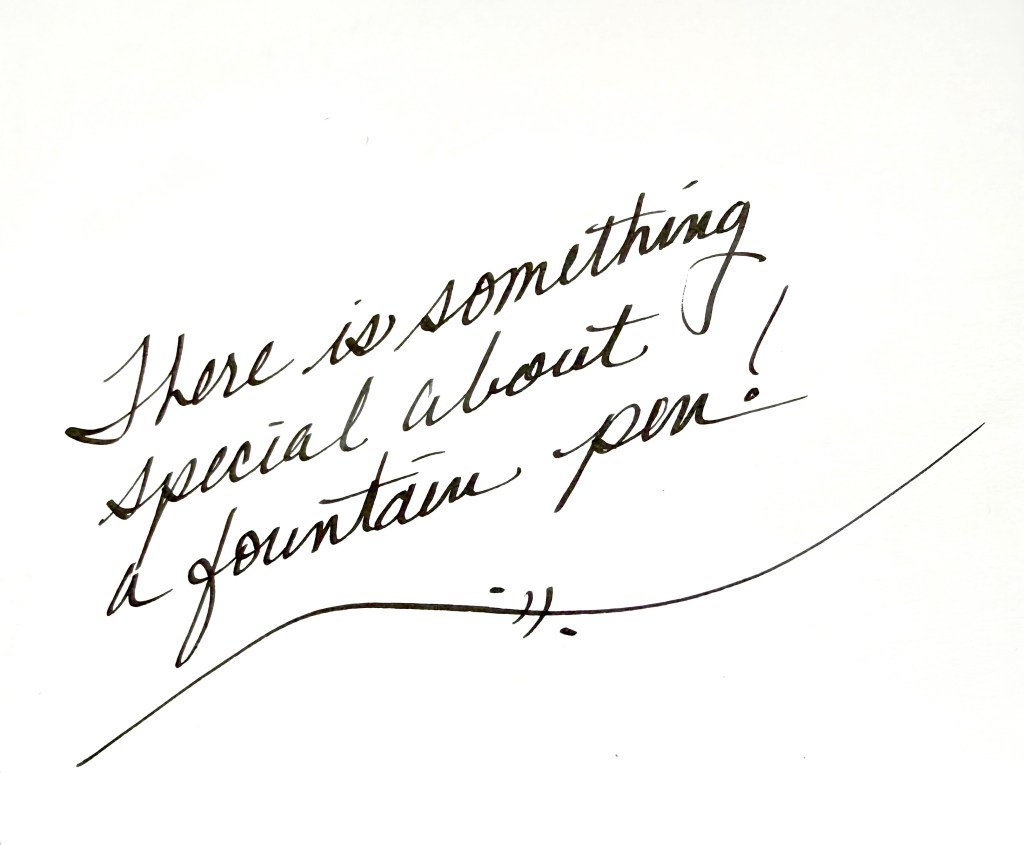 There is something
special about
a fountain pen!